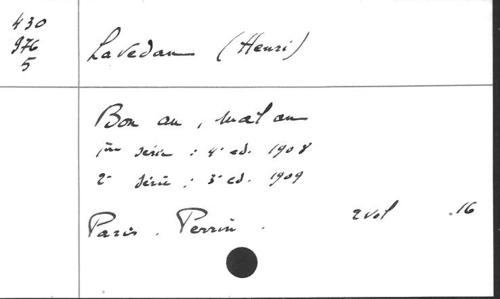 430
976
5
Lavedan (Henri)
Bon an, mal an
1ère série : 4e ed. 1908
2e série : 3e ed. 1909
Paris. Perrin. 2 vol .16